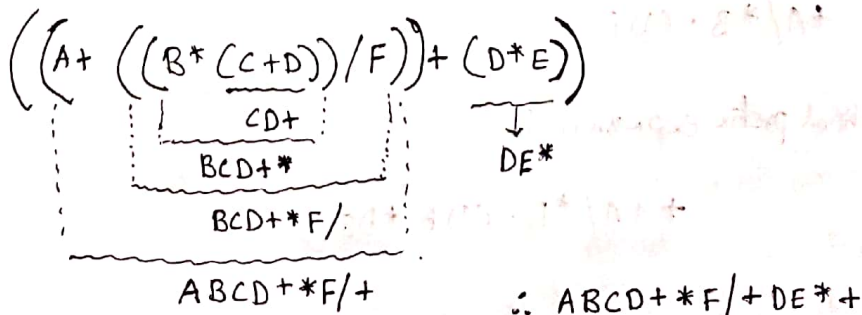 ((A+ ((B* (C+D))/F))+ (D*E))
CD+
DE*
BCD+*
BCD+*F/
ABCD+*F/+
∴ ABCD+*F/+DE*+